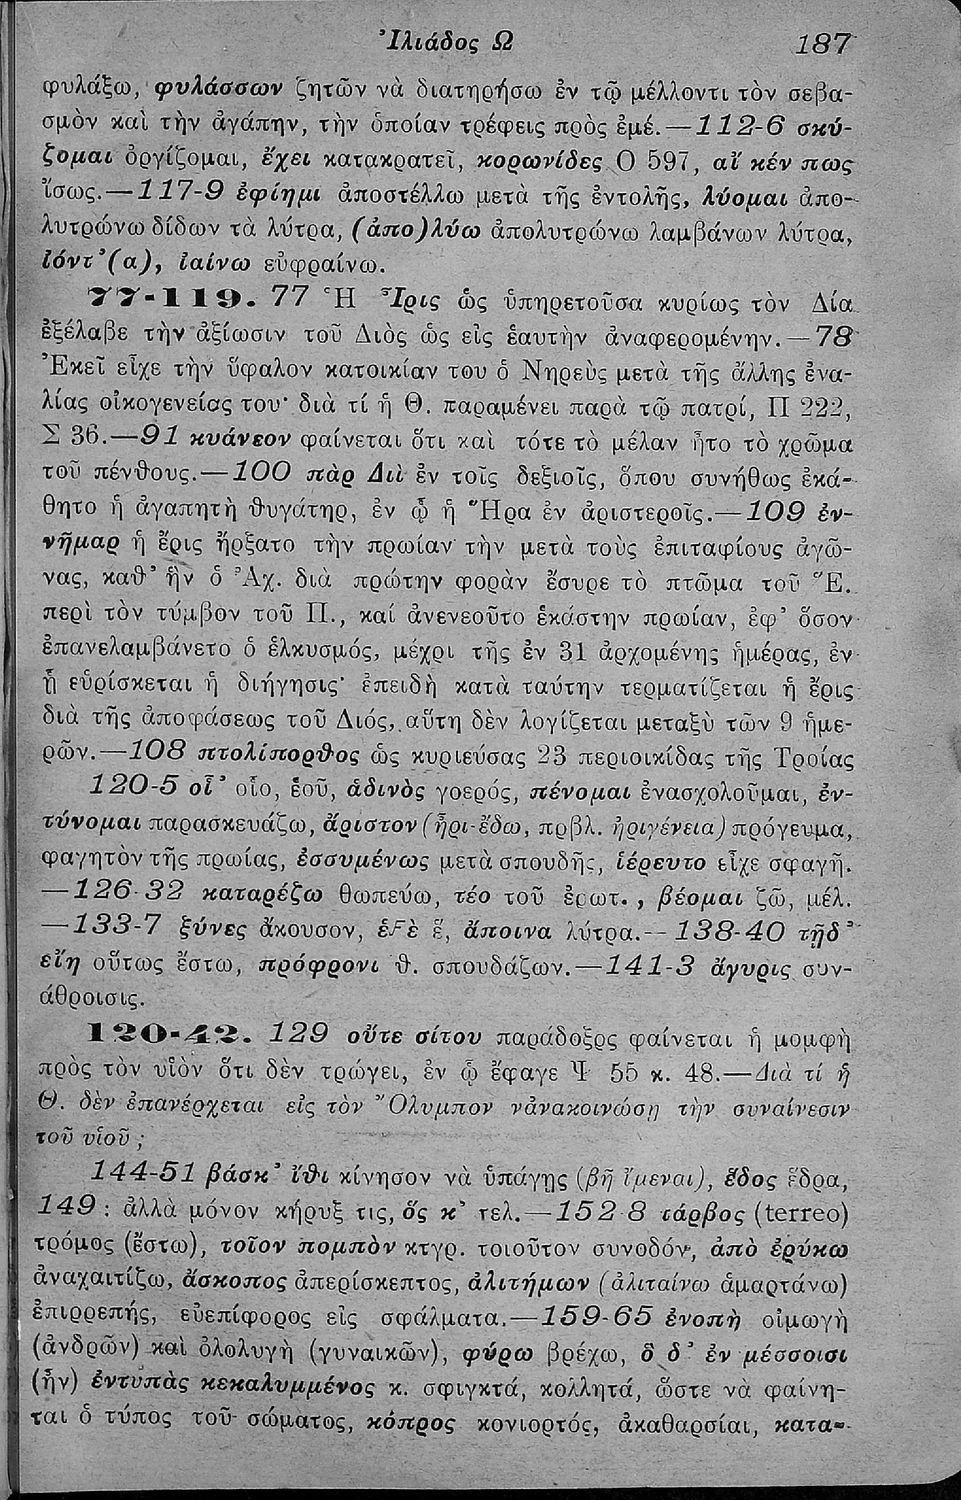 Ἰλιάδος Ω 187
φυλάξω, φυλάσσων ζητῶν νὰ διατηρήσω ἐν τῷ μέλλοντι τὸν σεβα-
σμὸν καὶ τὴν ἀγάπην, τὴν ὁποίαν τρέφεις πρὸς ἐμέ.—112-6 σκύ-
ζομαι ὀργίζομαι, ἔχει κατακρατεῖ, κορωνίδες Ο 597, αἴ κέν πως
ἴσως.—117-9 ἐφίημι ἀποστέλλω μετὰ τῆς ἐντολῆς, λύομαι ἀπο-
λυτρώνω δίδων τὰ λύτρα, (ἀπο)λύω ἀπολυτρώνω λαμβάνων λύτρα,
ἰόντ’(α), ἰαίνω εὐφραίνω.
77-119. 77 Ἡ Ἶρις ὡς ὑπηρετοῦσα κυρίως τὸν Δία
ἐξέλαβε τὴν ἀξίωσιν τοῦ Διὸς ὡς εἰς ἑαυτὴν ἀναφερομένην.—78
Ἐκεῖ εἶχε τὴν ὕφαλον κατοικίαν του ὁ Νηρεὺς μετὰ τῆς ἄλλης ἐνα-
λίας οἰκογενείας του· διὰ τί ἡ Θ. παραμένει παρὰ τῷ πατρί, Π 222,
Σ 36.—91 κυάνεον φαίνεται ὅτι καὶ τότε τὸ μέλαν ἦτο τὸ χρῶμα
τοῦ πένθους.—100 πὰρ Διὶ ἐν τοῖς δεξιοῖς, ὅπου συνήθως ἐκά-
θητο ἡ ἀγαπητὴ θυγάτηρ, ἐν ᾧ ἡ Ἥρα ἐν ἀριστεροῖς.—109 ἐν-
νῆμαρ ἡ ἔρις ἤρξατο τὴν πρωίαν τὴν μετὰ τοὺς ἐπιταφίους ἀγῶ-
νας, καθ’ ἣν ὁ Ἀχ. διὰ πρώτην φορὰν ἔσυρε τὸ πτῶμα τοῦ Ἕ.
περὶ τὸν τύμβον τοῦ Π., καί ἀνενεοῦτο ἑκάστην πρωίαν, ἐφ’ ὅσον
ἐπανελαμβάνετο ὁ ἑλκυσμός, μέχρι τῆς ἐν 31 ἀρχομένης ἡμέρας, ἐν
ᾗ εὑρίσκεται ἡ διήγησις· ἐπειδὴ κατὰ ταύτην τερματίζεται ἡ ἔρις
διὰ τῆς ἀποφάσεως τοῦ Διός, αὕτη δὲν λογίζεται μεταξὺ τῶν 9 ἡμε-
ρῶν.—108 πτολίπορθος ὡς κυριεύσας 23 περιοικίδας τῆς Τροίας
120-5 οἷ’ οἷο, ἑοῦ, ἁδινὸς γοερός, πένομαι ἐνασχολοῦμαι, ἐν-
τύνομαι παρασκευάζω, ἄριστον (ἦρι-ἔδω, πρβλ. ἠριγένεια) πρόγευμα,
φαγητὸν τῆς πρωίας, ἐσσυμένως μετὰ σπουδῆς, ἱέρευτο εἶχε σφαγῆ.
—126-32 καταρέζω θωπεύω, τέο τοῦ ἐρωτ., βέομαι ζῶ, μέλ.
—133-7 ξύνες ἄκουσον, ἑϝὲ ἕ, ἄποινα λύτρα.—138-40 τῇδ’
εἴη οὕτως ἔστω, πρόφρονι θ. σπουδάζων.—141-3 ἄγυρις συν-
άθροισις.
120-42. 129 οὔτε σίτου παράδοξος φαίνεται ἡ μομφὴ
πρὸς τὸν υἱὸν ὅτι δὲν τρώγει, ἐν ᾧ ἔφαγε Ψ 55 κ. 48.—Διὰ τί ἡ
Θ. δὲν ἐπανέρχεται εἰς τὸν Ὄλυμπον νἀνακοινώσῃ τὴν συναίνεσιν
τοῦ υἱοῦ;
144-51 βάσκ’ ἴθι κίνησον νὰ ὑπάγῃς (βῆ ἴμεναι), ἕδος ἕδρα,
149: ἀλλὰ μόνον κήρυξ τις, ὅς κ’ τελ.—152-8 τάρβος (terreo)
τρόμος (ἔστω), τοῖον πομπὸν κτγρ. τοιοῦτον συνοδόν, ἀπὸ ἐρύκω
ἀναχαιτίζω, ἄσκοπος ἀπερίσκεπτος, ἀλιτήμων (ἀλιταίνω ἁμαρτάνω)
ἐπιρρεπής, εὐεπίφορος εἰς σφάλματα.—159-65 ἐνοπὴ οἰμωγὴ
(ἀνδρῶν) καὶ ὀλολυγὴ (γυναικῶν), φύρω βρέχω, ὃ δ’ ἐν μέσσοισι
(ἦν) ἐντυπὰς κεκαλυμμένος κ. σφιγκτά, κολλητά, ὥστε νὰ φαίνη-
ται ὁ τύπος τοῦ σώματος, κόπρος κονιορτός, ἀκαθαρσίαι, κατα-